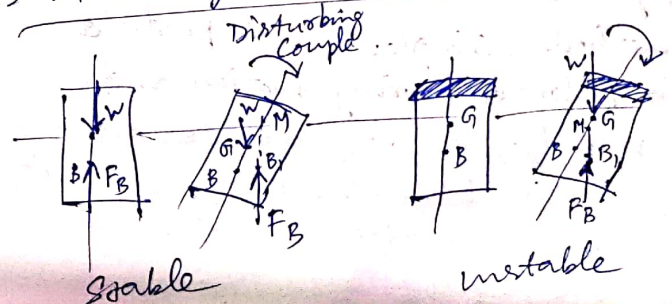 Disturbing
Couple
W
B
F_B
W
M
G
B
B₁
F_B
G
B
W
G
M
B
B₁
F_B
Stable
unstable